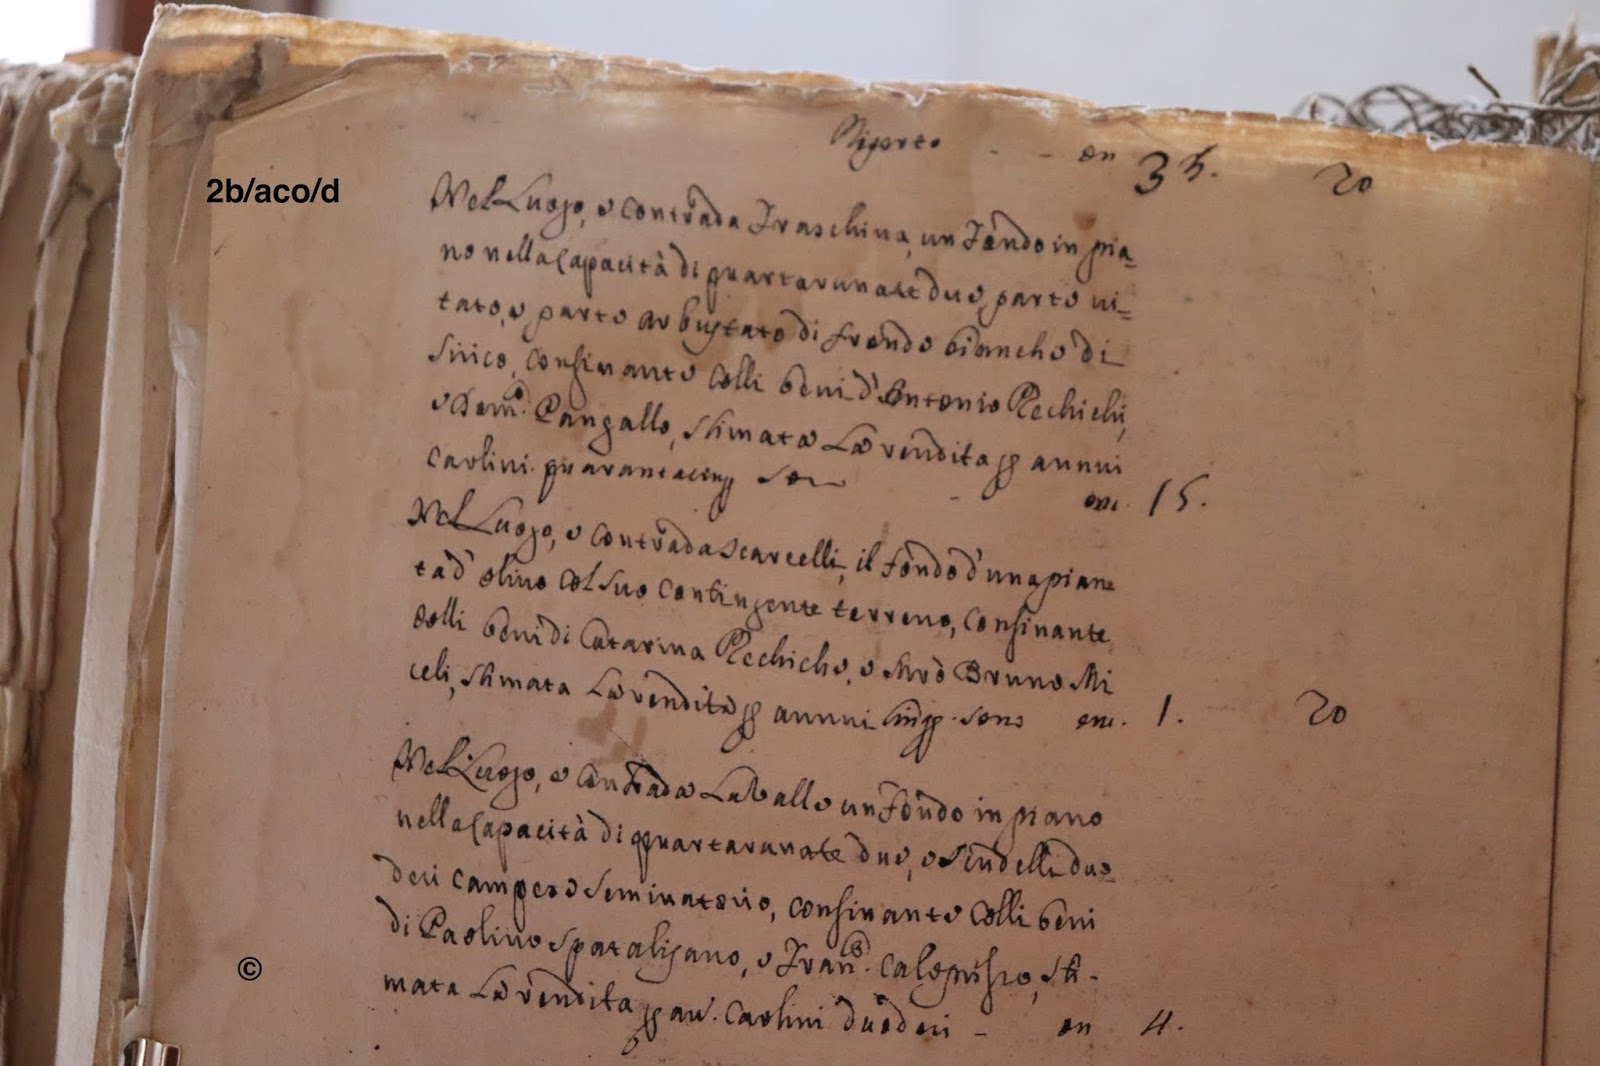 Riporto - - on 35. 20
2b/aco/d
Nel Luogo, o contrada Fraschina, un Fondo in pia=
no nella Capacità di quartarunate due, parte vi=
tato, e parte arbustato di fronde bianche di
Sirico, confinante colli beni d'Antonio Rechichi,
e Dom.co Pangallo, stimata La vendita per annui
Carlini quarantacinq. sono - on. 15.
Nel Luogo, o contrada Scarcelli, il fondo d'una pian
ta d'olivo col suo contingente terreno, confinante
colli beni di Catarina Rechiche, e Bruno Mi
celi, stimata La vendita per annui cinq. sono on. 1. 20
Nel Luogo, o Contrada La Valle un Fondo in piano
nella Capacità di quartarunate due, e due
deci campese seminatorio, confinante colli beni
di Paolino Spatalisano, e Fran.co sti-
mata La vendita per an. Carlini duodeci - on 4.
©